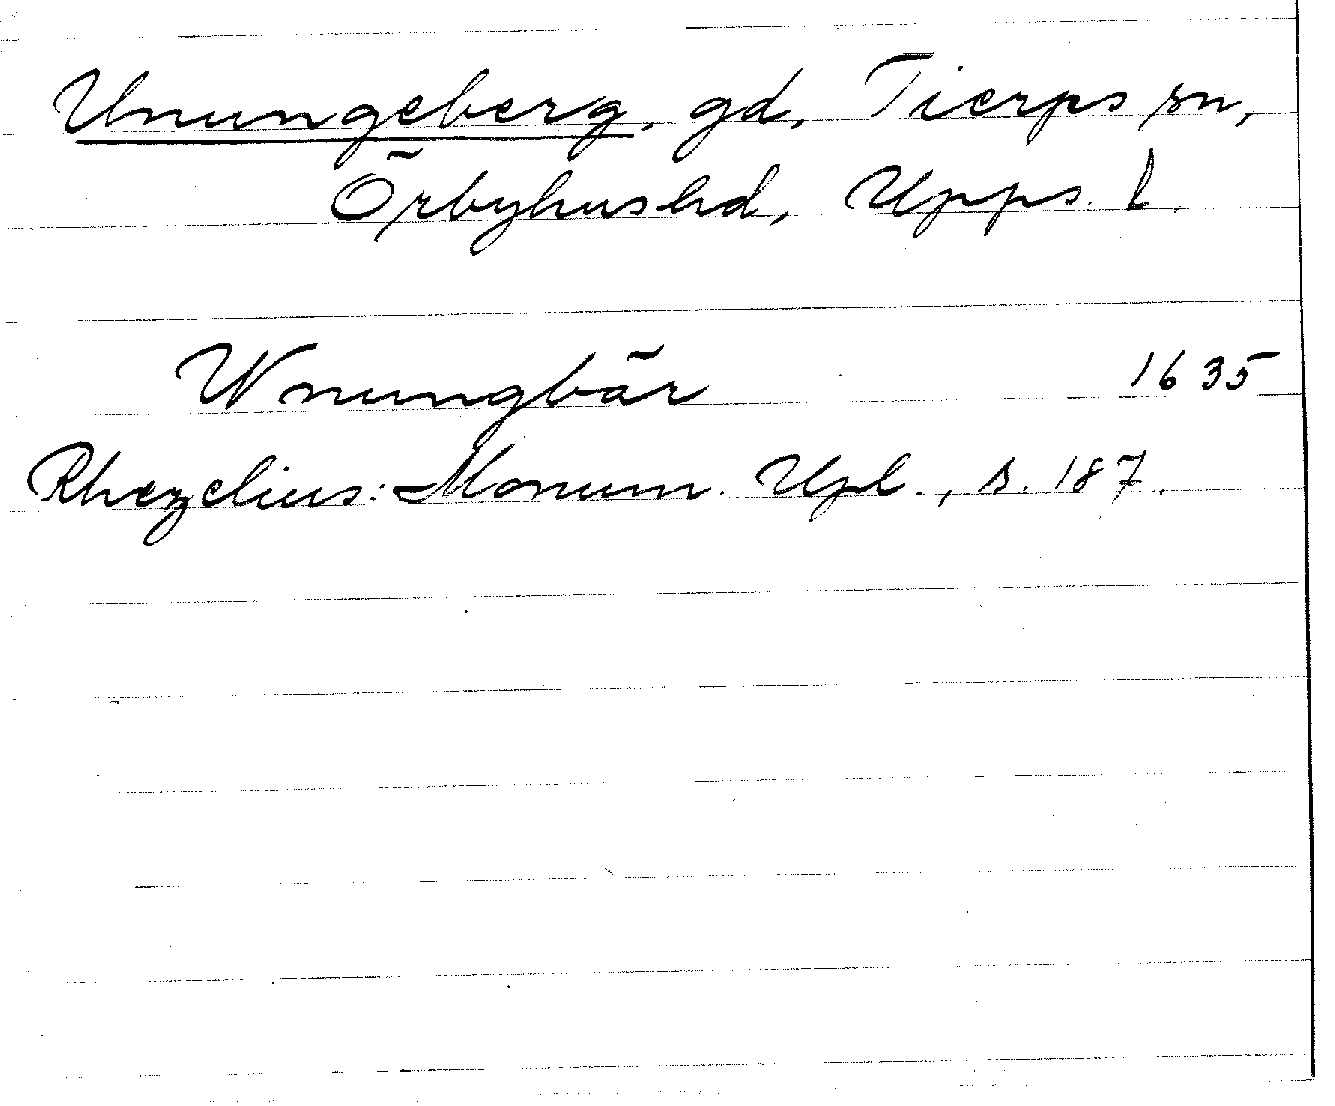 Unungeberg, gd, Tierps sn,
Örbyhus hd, Upps. l.
Wnungbär 1635
Rhezelius: Monum. Upl., s. 187.